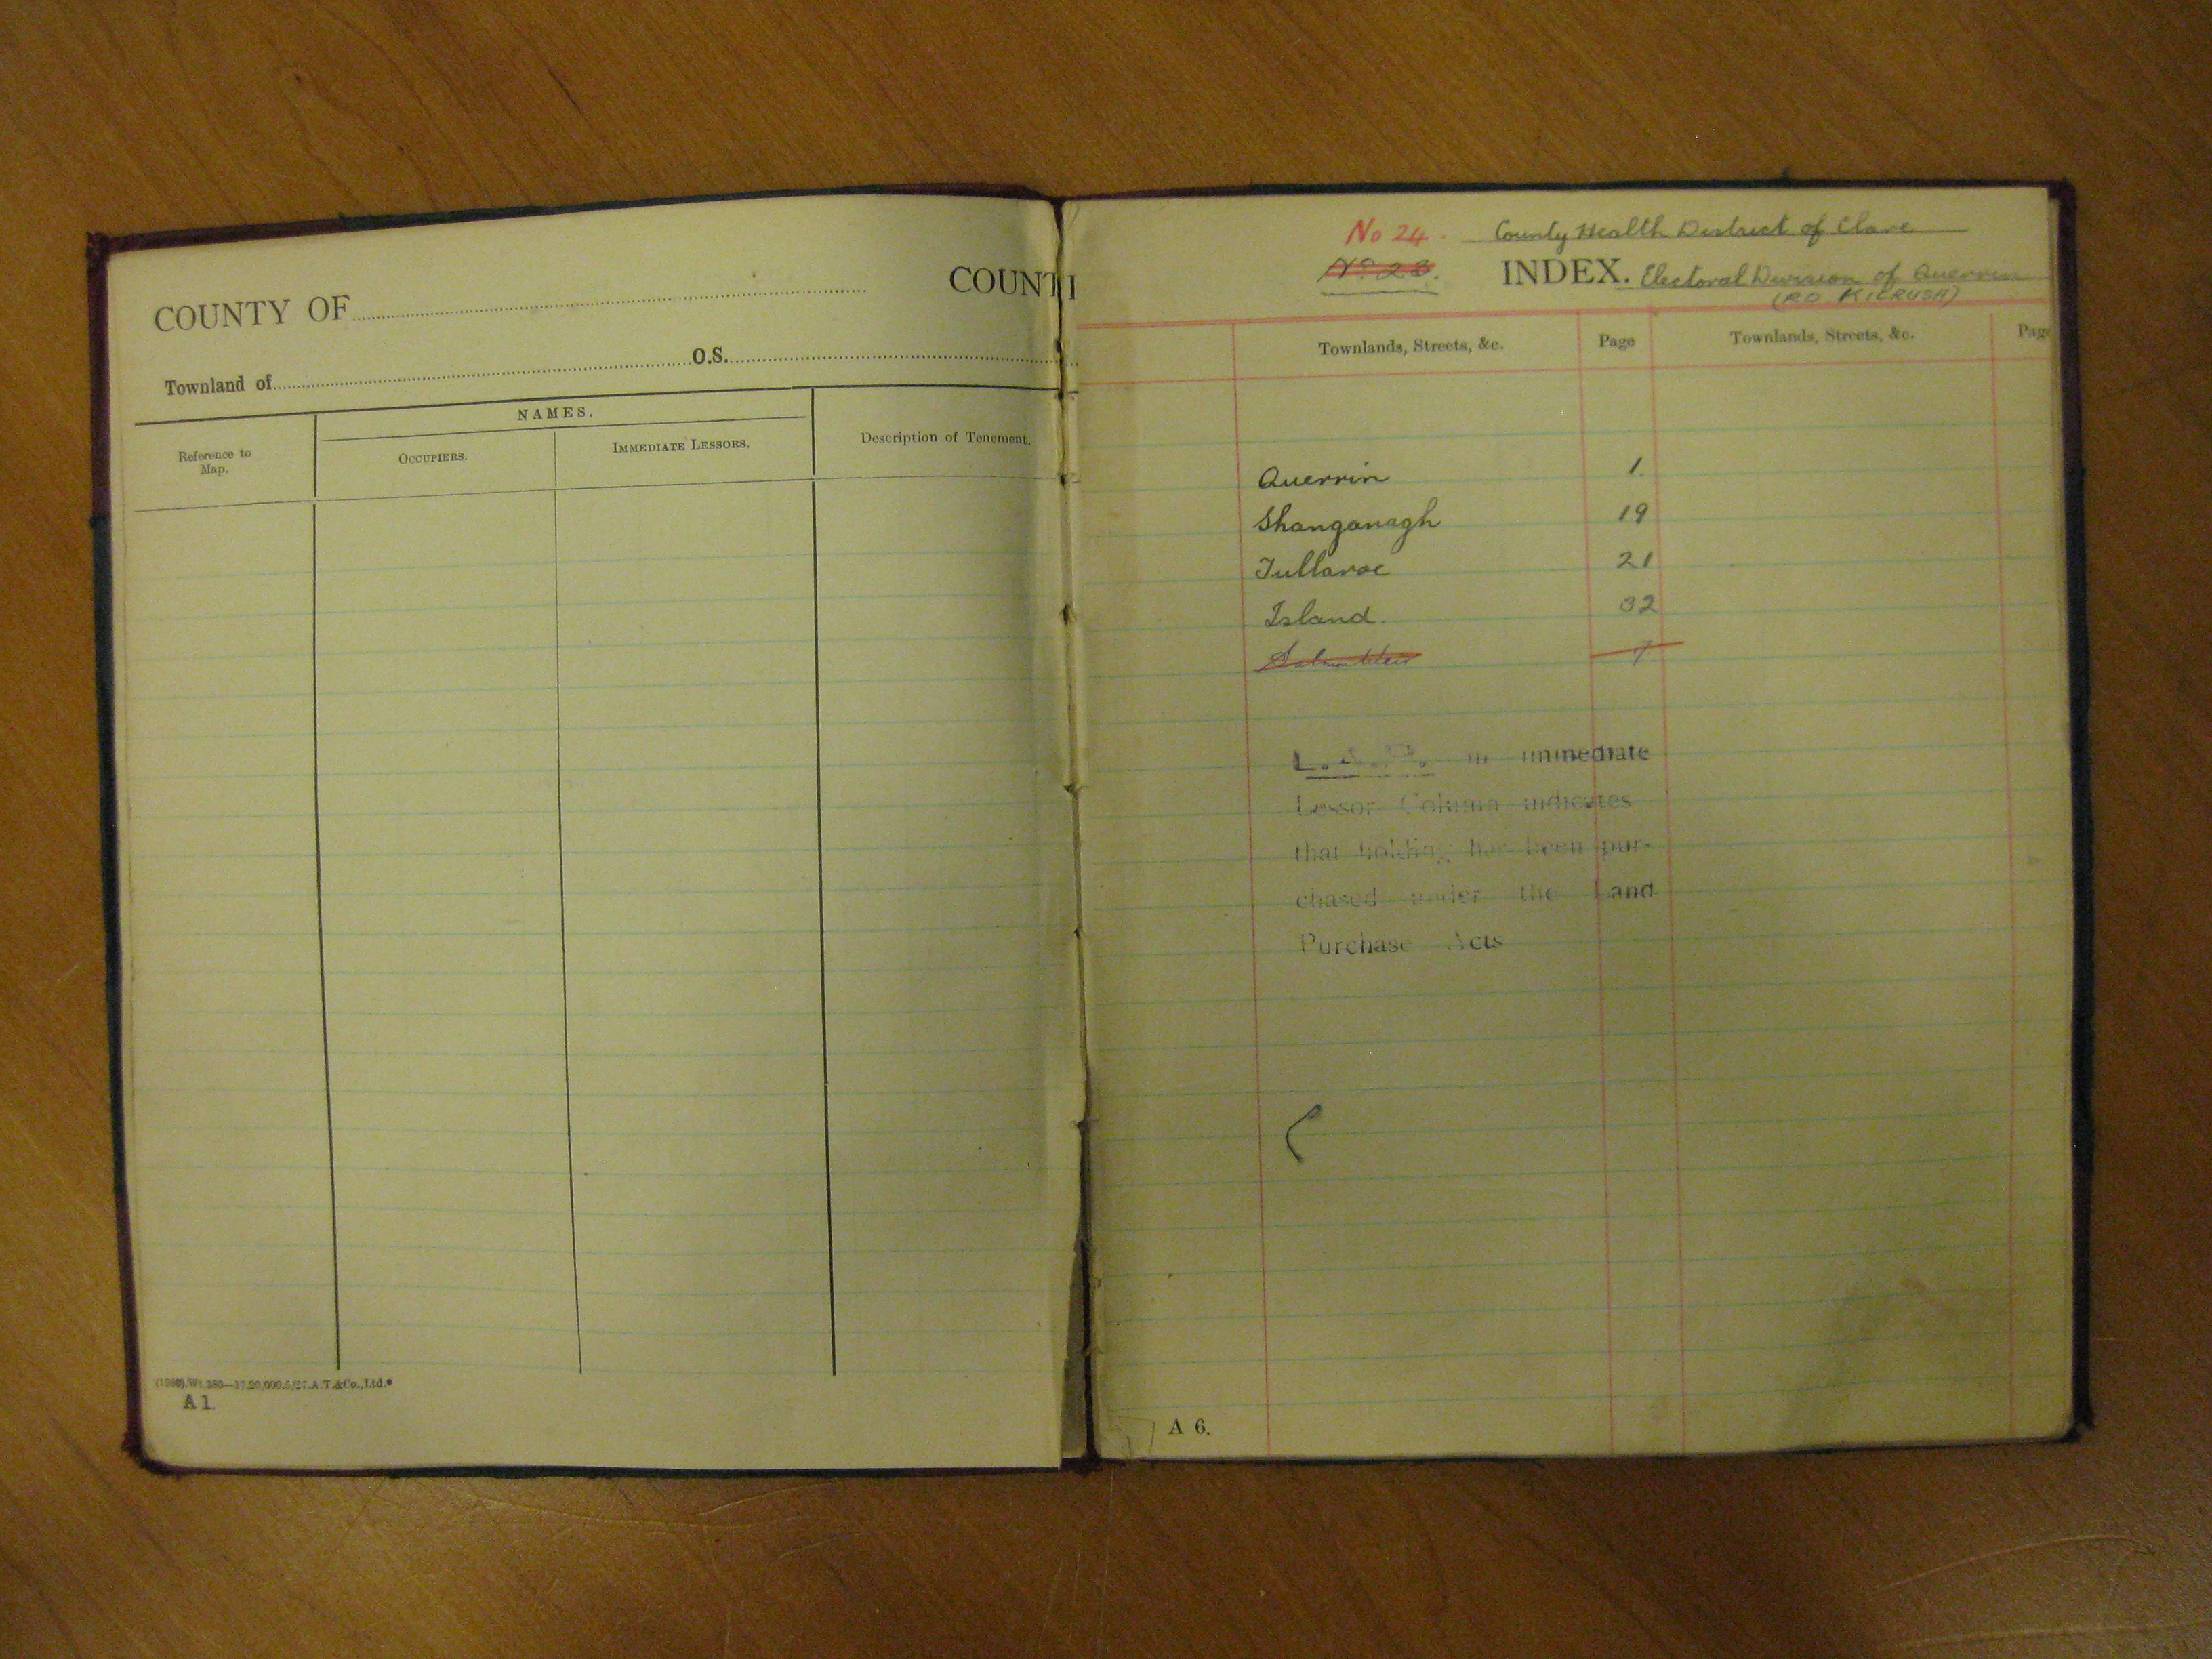 COUNTY OF
COUNT
Townland of O.S.
NAMES.
Reference to Map.
OCCUPIERS.
IMMEDIATE LESSORS.
Description of Tenement.
A 1.
No 24. County Health District of Clare
No 28. INDEX. Electoral Division of Querrin
(RD KILRUSH)
Townlands, Streets, &c. Page Townlands, Streets, &c. Page
Querrin 1.
Shanganagh 19
Tullaroe 21
Island. 32
7
L.A.P. in immediate
Lessor Column indicates
that holding has been pur-
chased under the Land
Purchase Acts
A 6.